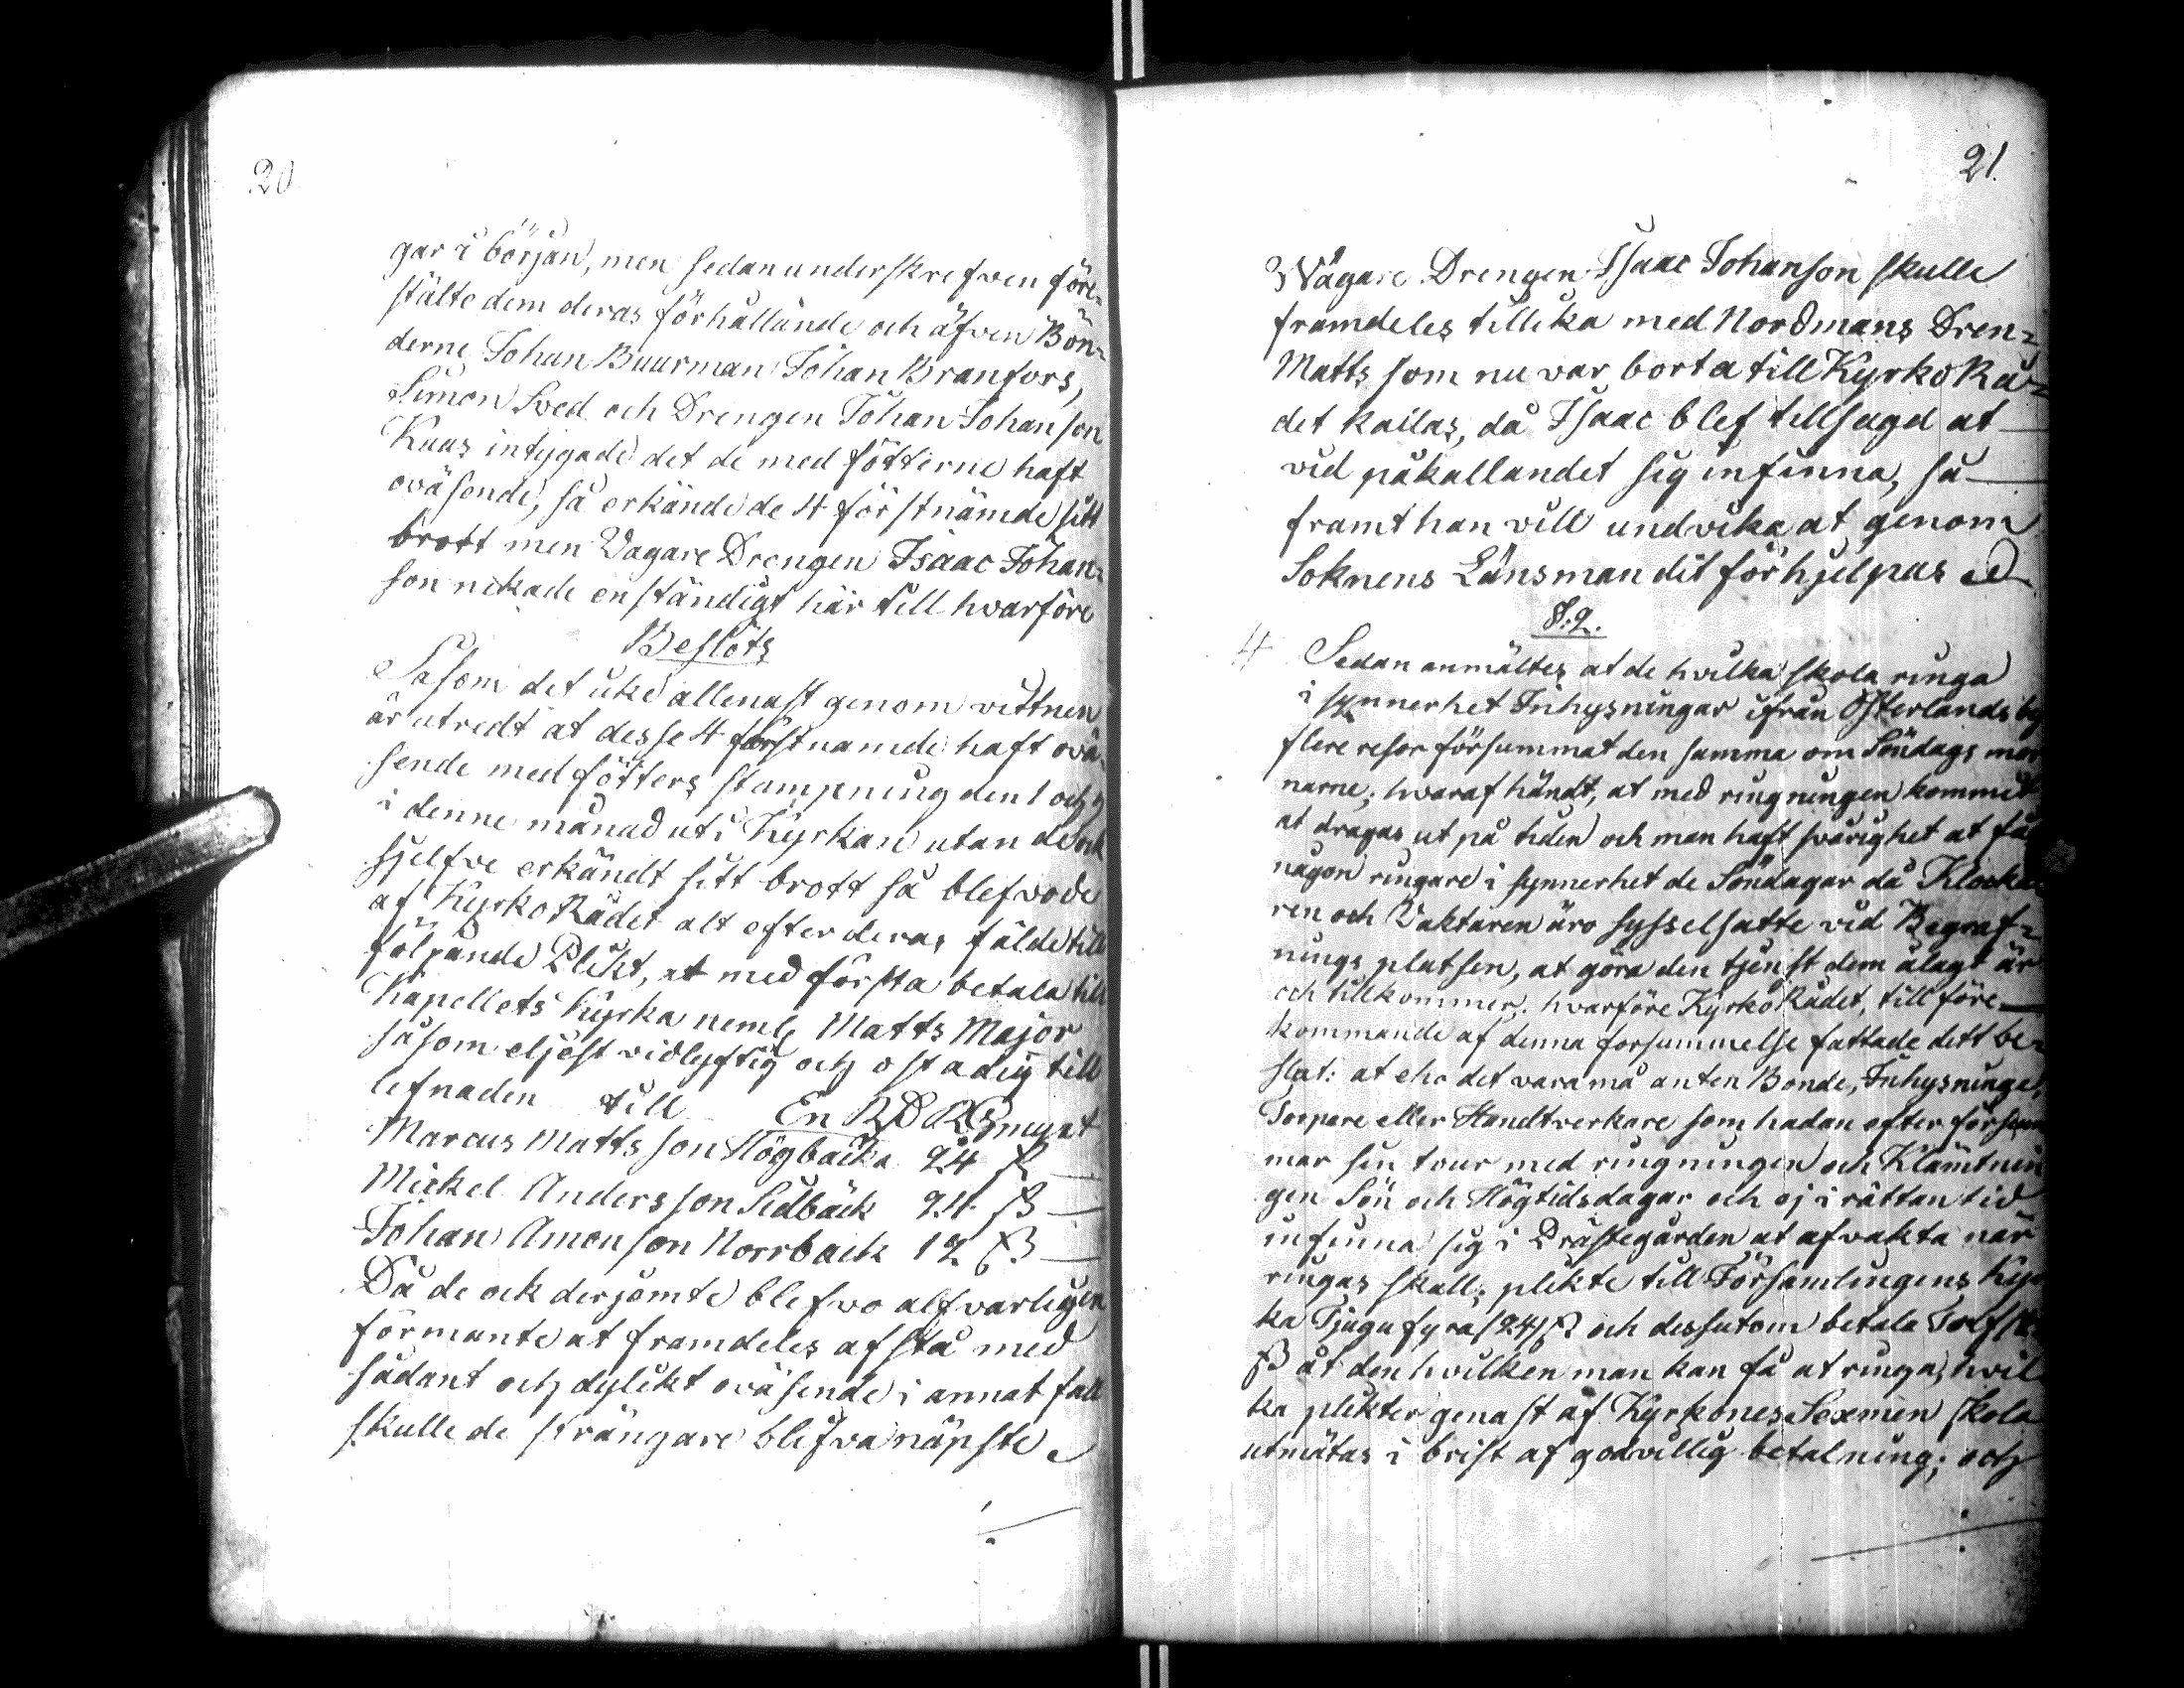 20
gar i början, men sedan underskrefven före-
stälte dem deras förhållande och äfven Bön-
derne Johan Buurman Johan Branfors,
Simon Sved och Drengen Johan Johanson
Kuas intygade det de med fötterne haft
oväsende, så erkände de 4 förstnämde sitt
brott men Vagare Drengen Isaac Johan-
son nekade enständigt här till hvarföre
Beslöts
Såsom det icke allenast genom vittnen
är utredt at desse 4 förstnamde haft ovä-
sende med fötters stampning den 1 och
i denne månad uti Kyrkan utan de ock
sjelfve erkändt sitt brott så blefvo de
af KyrkoRådet alt efter deras fälde till
följande Plikt, at med första betala till
Kapellets Kyrka neml. Matts Major
såsom eljest vidlyftig och ostadig till
lefnaden till En RD RGsmynt
Marcus Mattsson Högbacka 24 ß
Mickel Andersson Sidbäck 24 ß
Johan Amonson Norrback 12 ß
Då de ock derjemte blefvo alfvarligen
förmante at framdeles afstå med
sådant och dylikt oväsende i annat fall
skulle de strängare blifva näpste
21.
Wågare Drengen Isaac Johanson skulle
framdeles tillika med Nordmans Dren-
Matts som nu var borta till KyrkoRå-
det kallas, då Isaac blef tillsagd at
vid påkallandet sig infinna, så
framt han vill undvika at genom
Soknens Länsman dit förhjelpas
§.2.
4 Sedan anmältes at de hvilka skola ringa
i synnerhet Inhysningar ifrån Österlands by
flere resor försummat den samma om Söndags mor
narne; hvaraf händt, at med ringningen kommit
at dragas ut på tiden och man haft svårighet at få
någon ringare i synnerhet de Söndagar då Klocka
ren och Vaktaren äro sysselsatte vid Begraf-
nings platsen, at göra den tjenst dem ålagt är
och tillkommer. hvarföre KyrkoRådet, till före-
kommande af denna forsummelse fattade dett be-
slut: at eho det vara må anten Bonde, Inhysninge,
Torpare eller Handtverkare som hadan efter försum
mar sin tour med ringningen och Klämtnin
gen Sön och Högtidsdagar och ej i rättan tid
infinna sig i Prästegården at afvakta när
ringas skall; plikte till Församlingens Kyr
ka Tjugu fyra /24/ ß och dessutom betala Tolf /12/
ß åt den hvilken man kan få at ringa, hvil
ka plikter genast af Kyrkones Sexmen skola
utmätas i brist af godvillig betalning; och